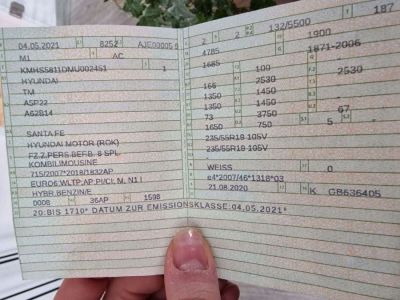 04.05.2021 8252 AJE00005
M1 AC
KMHS5811DMU002451 1
HYUNDAI
TM
A5P22
A62B14
SANTA FE
HYUNDAI MOTOR (ROK)
FZ.Z.PERS.BEF.B. 8 SPL.
KOMBILIMOUSINE
715/2007*2018/1832AP
EURO6;WLTP;AP;PI/CI, M, N1 I
HYBR.BENZIN/E
0008 36AP 1598
20:BIS 1710* DATUM ZUR EMISSIONSKLASSE:04.05.2021*
2 2 132/5500 187
4785 1900
1685 1871-2006
100
166 2530 2530
1350 1450
1350 1450
73 750 67
1650 3750 5 -
235/55R19 105V
235/55R19 105V
-
WEISS 0
e4*2007/46*1318*03
21.08.2020 K GB636405